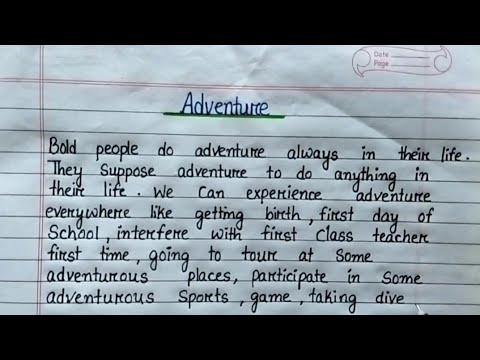 Date
Page
Adventure
Bold people do adventure always in their life.
They Suppose adventure to do anything in
their life. We Can experience adventure
everywhere like getting birth, first day of
School, interfere with first Class teacher
first time, going to tour at Some
adventurous places, participate in Some
adventurous Sports, game, taking dive